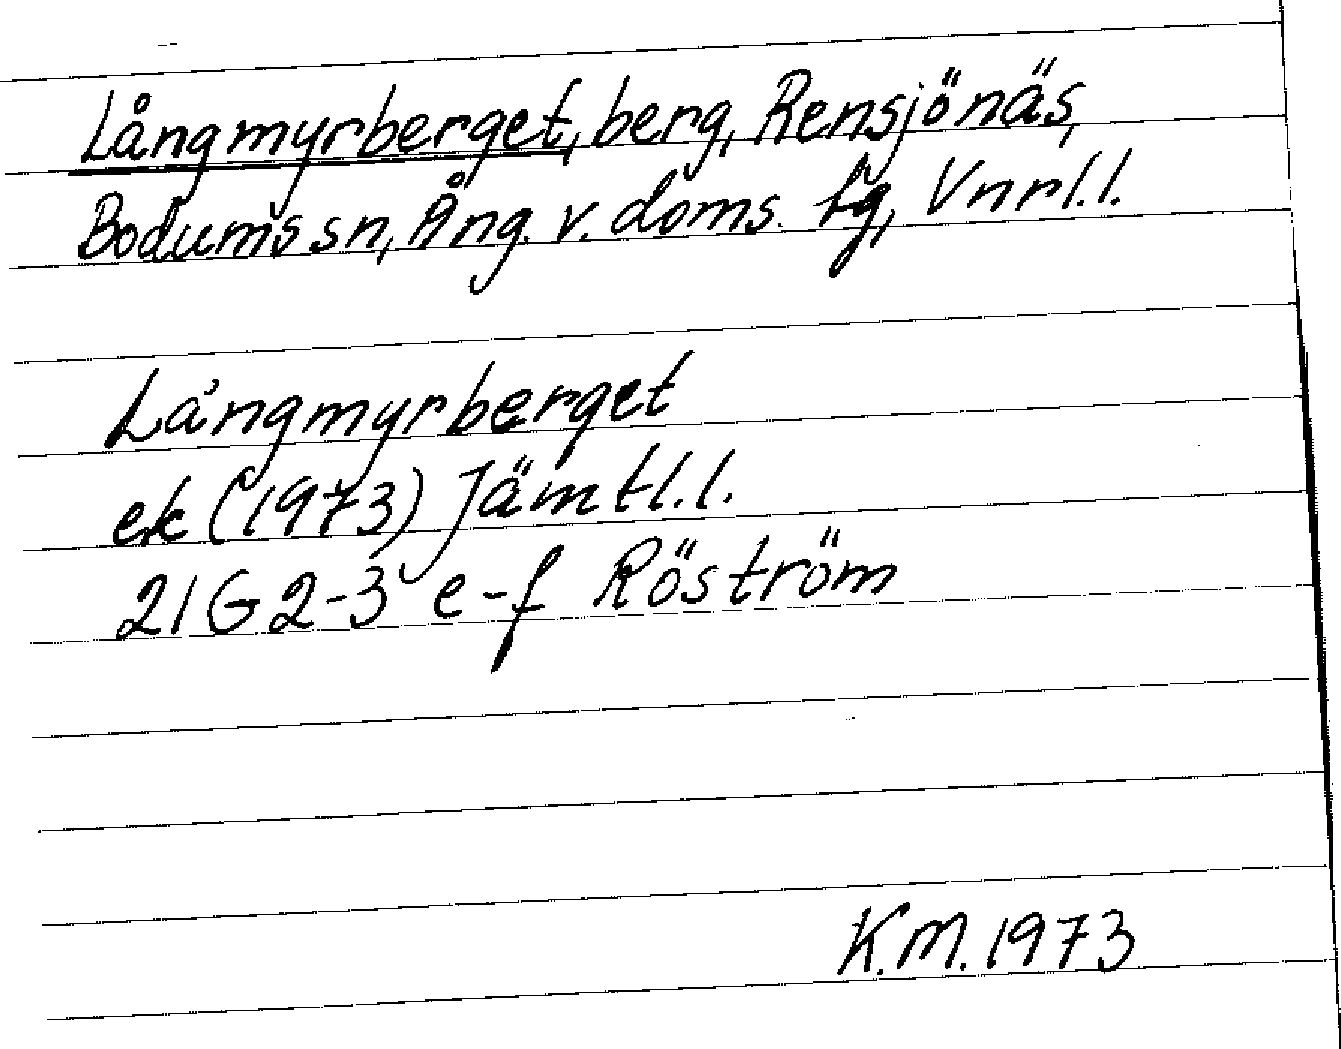 Långmyrberget, berg, Rensjönäs,
Bodums sn, Ång. v. doms. fg, Vnrl.l.
Långmyrberget
ek (1973) Jämtl.l.
21G 2-3 e-f Röström
K.M. 1973